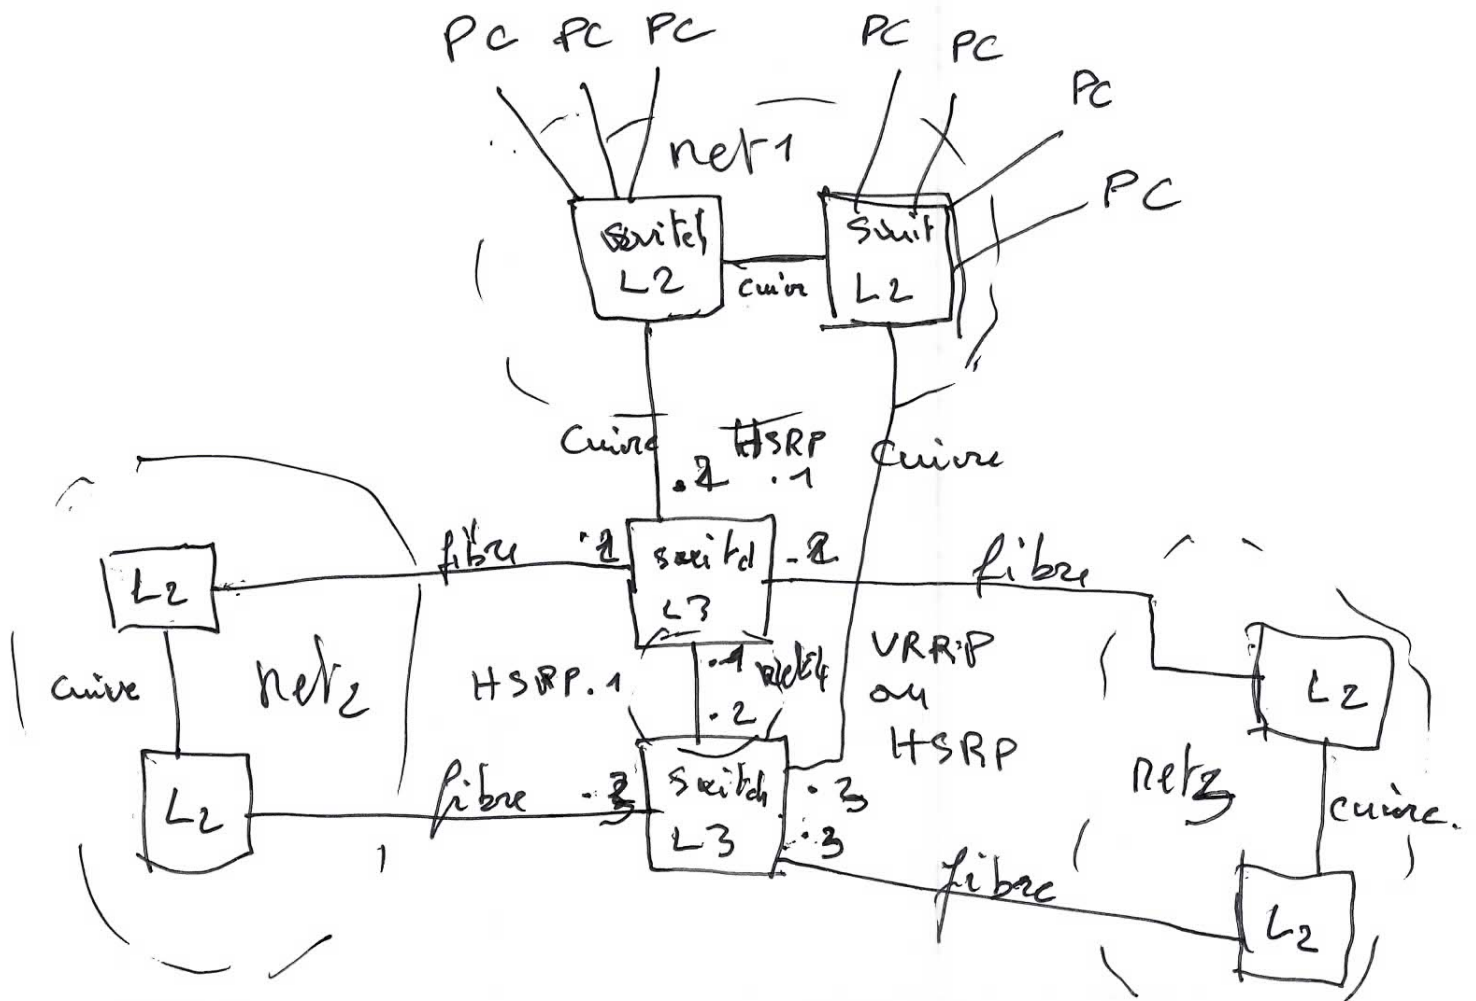 PC PC PC PC PC
PC
PC
net1
switch
L2
cuivr
Swit
L2
Cuivre
HSRP
.2 .1
Cuivre
fibre
switch
L3
.2
fibre
L2
cuivre
net2
HSRP.1
.1 net4
.2
VRRP
ou
HSRP
L2
net3
cuivre.
L2
fibre
.3
switch
L3
.3
.3
fibre
L2